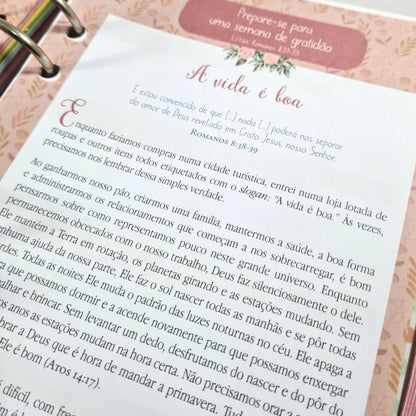 Prepare-se para
uma semana de gratidão
Leia: Romanos 8:31-39
A vida é boa
E estou convencido de que [...] nada [...] poderá nos separar
do amor de Deus revelado em Cristo Jesus, nosso Senhor.
Romanos 8:38-39
Enquanto fazíamos compras numa cidade turística, entrei numa loja lotada de
roupas e outros itens todos etiquetados com o slogan: "A vida é boa." Às vezes,
precisamos nos lembrar dessa simples verdade.
Ao ganharmos nosso pão, criarmos uma família, mantermos a saúde, a boa forma
e administrarmos os relacionamentos que começam a nos sobrecarregar, é bom
pensarmos sobre como representamos pouco neste grande universo. Enquanto
permanecemos obcecados com o nosso trabalho, Deus faz silenciosamente o dele.
Ele mantém a Terra em rotação, os planetas girando e as estações mudando. Sem
nhuma ajuda da nossa parte, Ele faz o sol nascer todas as manhãs e se pôr todas
rdes. Todas as noites Ele muda o padrão das luzes noturnas no céu. Ele apaga a
ra que possamos dormir e a acende novamente para que possamos enxergar
alhar e brincar. Sem levantar um dedo, desfrutamos do nascer e do pôr do
os anos as estações mudam na hora certa. Não precisamos orar a
brar a Deus que é hora de mandar a primavera. Tud
Ele é bom (Atos 14:17).
difícil, com freq